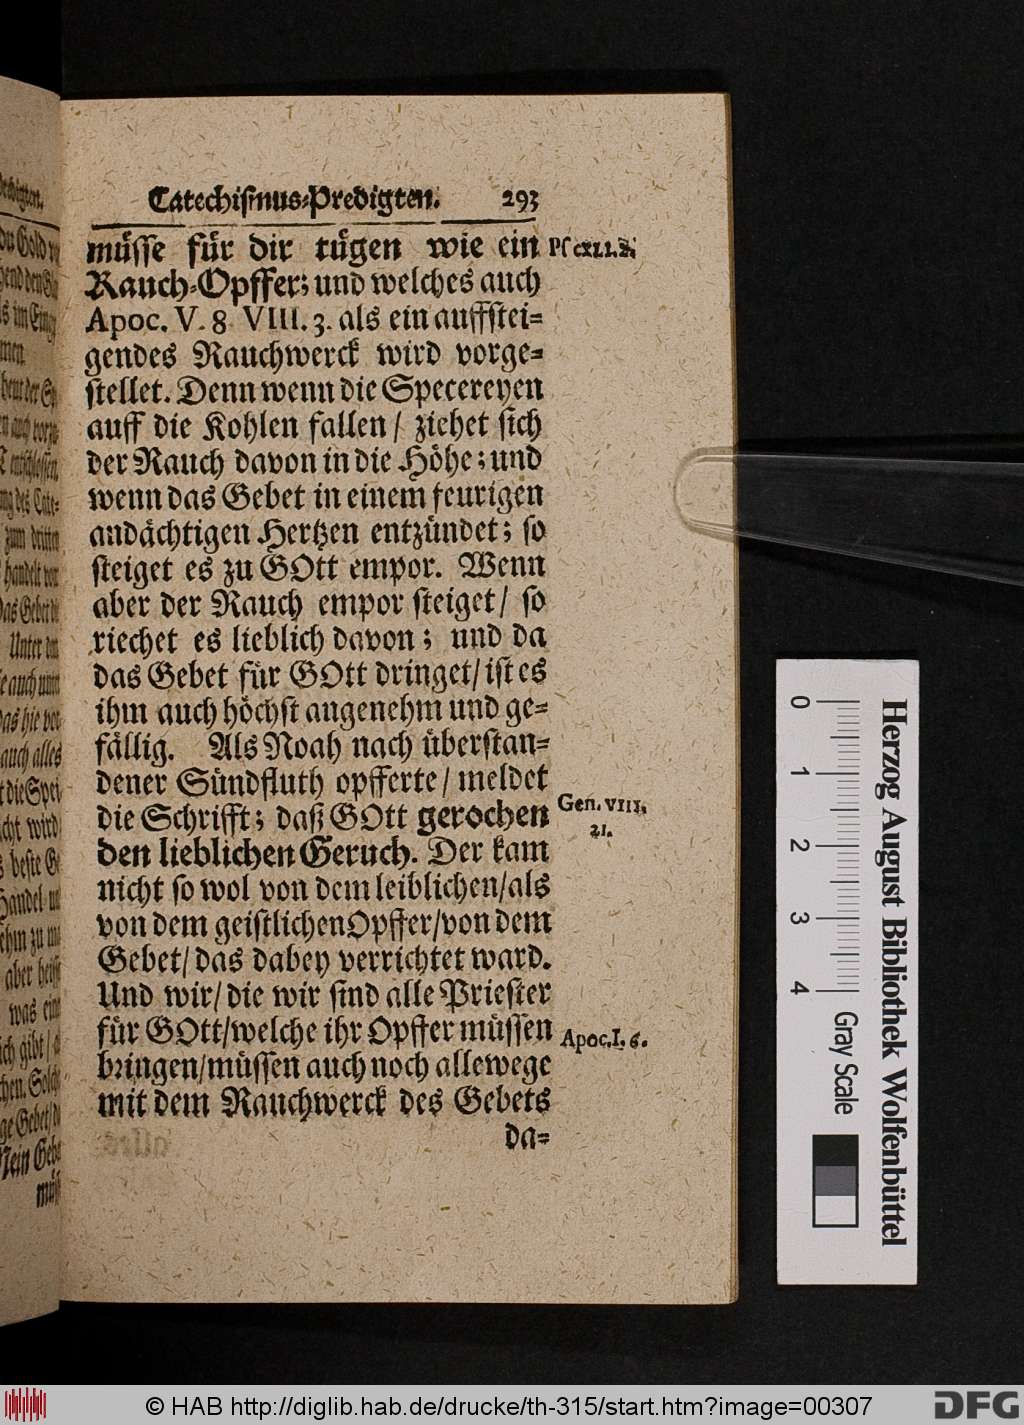 Catechismus-Predigten. 293
müsse für dir tügen wie ein
Rauch-Opffer; und welches auch
Apoc. V. 8 VIII. 3. als ein auffstei-
gendes Rauchwerck wird vorge-
stellet. Denn wenn die Specereyen
auff die Kohlen fallen / ziehet sich
der Rauch davon in die Höhe; und
wenn das Gebet in einem feurigen
andächtigen Hertzen entzündet; so
steiget es zu GOtt empor. Wenn
aber der Rauch empor steiget / so
riechet es lieblich davon; und da
das Gebet für GOtt dringet / ist es
ihm auch höchst angenehm und ge-
fällig. Als Noah nach überstan-
dener Sündfluth opfferte / meldet
die Schrifft; daß GOtt gerochen
den lieblichen Geruch. Der kam
nicht so wol von dem leiblichen / als
von dem geistlichen Opffer / von dem
Gebet / das dabey verrichtet ward.
Und wir / die wir sind alle Priester
für GOtt / welche ihr Opffer müssen
bringen / müssen auch noch allewege
mit dem Rauchwerck des Gebets
da-
Gen. VIII.
21.
Apoc. I. 6.
0 1 2 3 4
Gray Scale
Herzog August Bibliothek Wolfenbüttel
© HAB http://diglib.hab.de/drucke/th-315/start.htm?image=00307
DFG